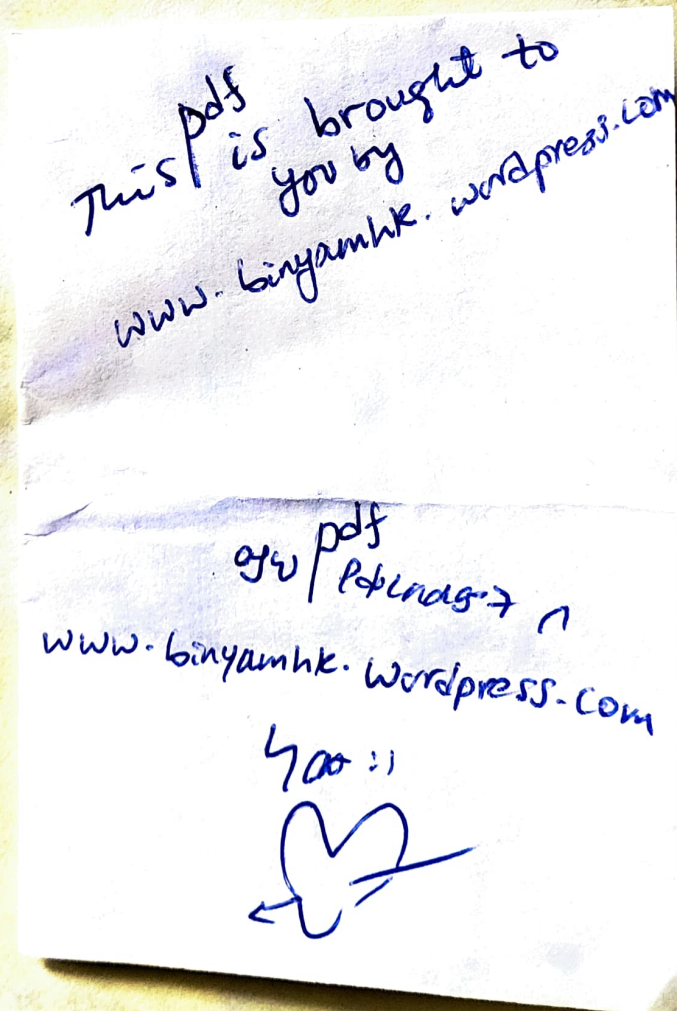 This pdf is brought to
you by
www.binyamhk.wordpress.com
ይህ pdf
www.binyamhk.wordpress.com
ነው :)